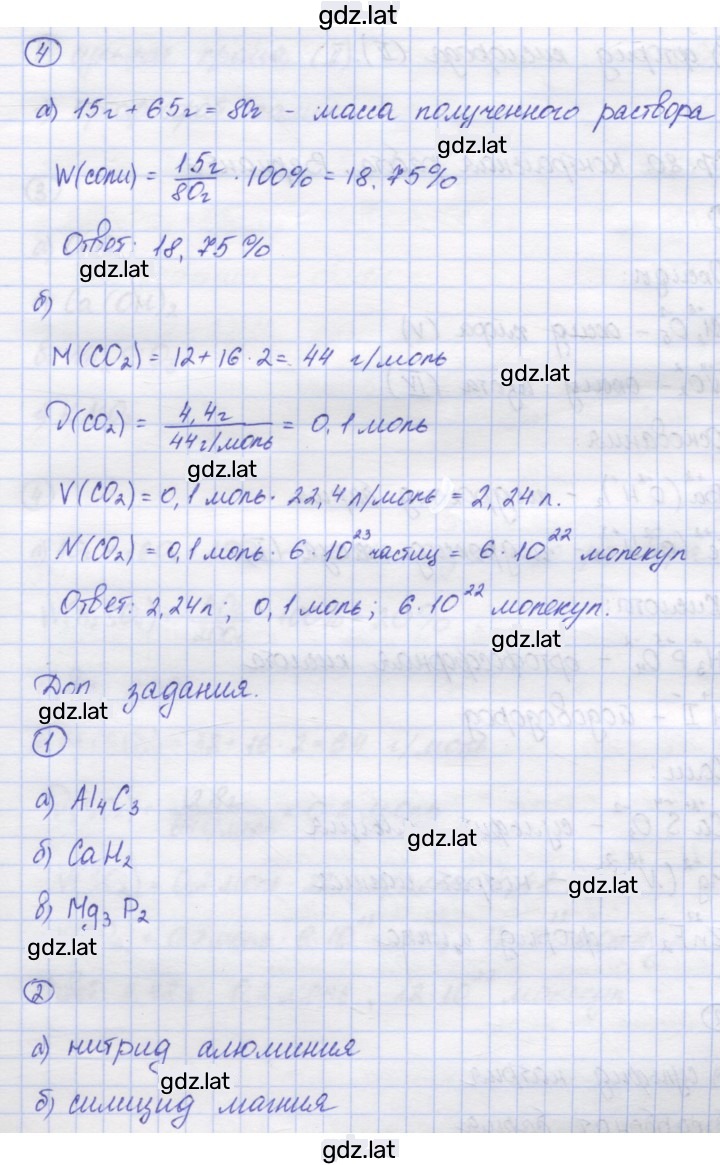 gdz.lat
4
а) 15г + 65г = 80г - масса полученного раствора
gdz.lat
W(соли) = 15г/80г · 100% = 18,75%
Ответ: 18,75 %
gdz.lat
б)
M(CO₂) = 12 + 16 · 2 = 44 г/моль
gdz.lat
ν(CO₂) = 4,4г/44г/моль = 0,1 моль
gdz.lat
V(CO₂) = 0,1 моль · 22,4 л/моль = 2,24 л.
N(CO₂) = 0,1 моль · 6 · 10²³ частиц = 6 · 10²² молекул
Ответ: 2,24л; 0,1 моль; 6 · 10²² молекул.
gdz.lat
Доп задания.
gdz.lat
1
а) Al₄C₃
gdz.lat
б) CaH₂
gdz.lat
в) Mg₃P₂
gdz.lat
2
а) нитрид алюминия
gdz.lat
б) силицид магния
gdz.lat